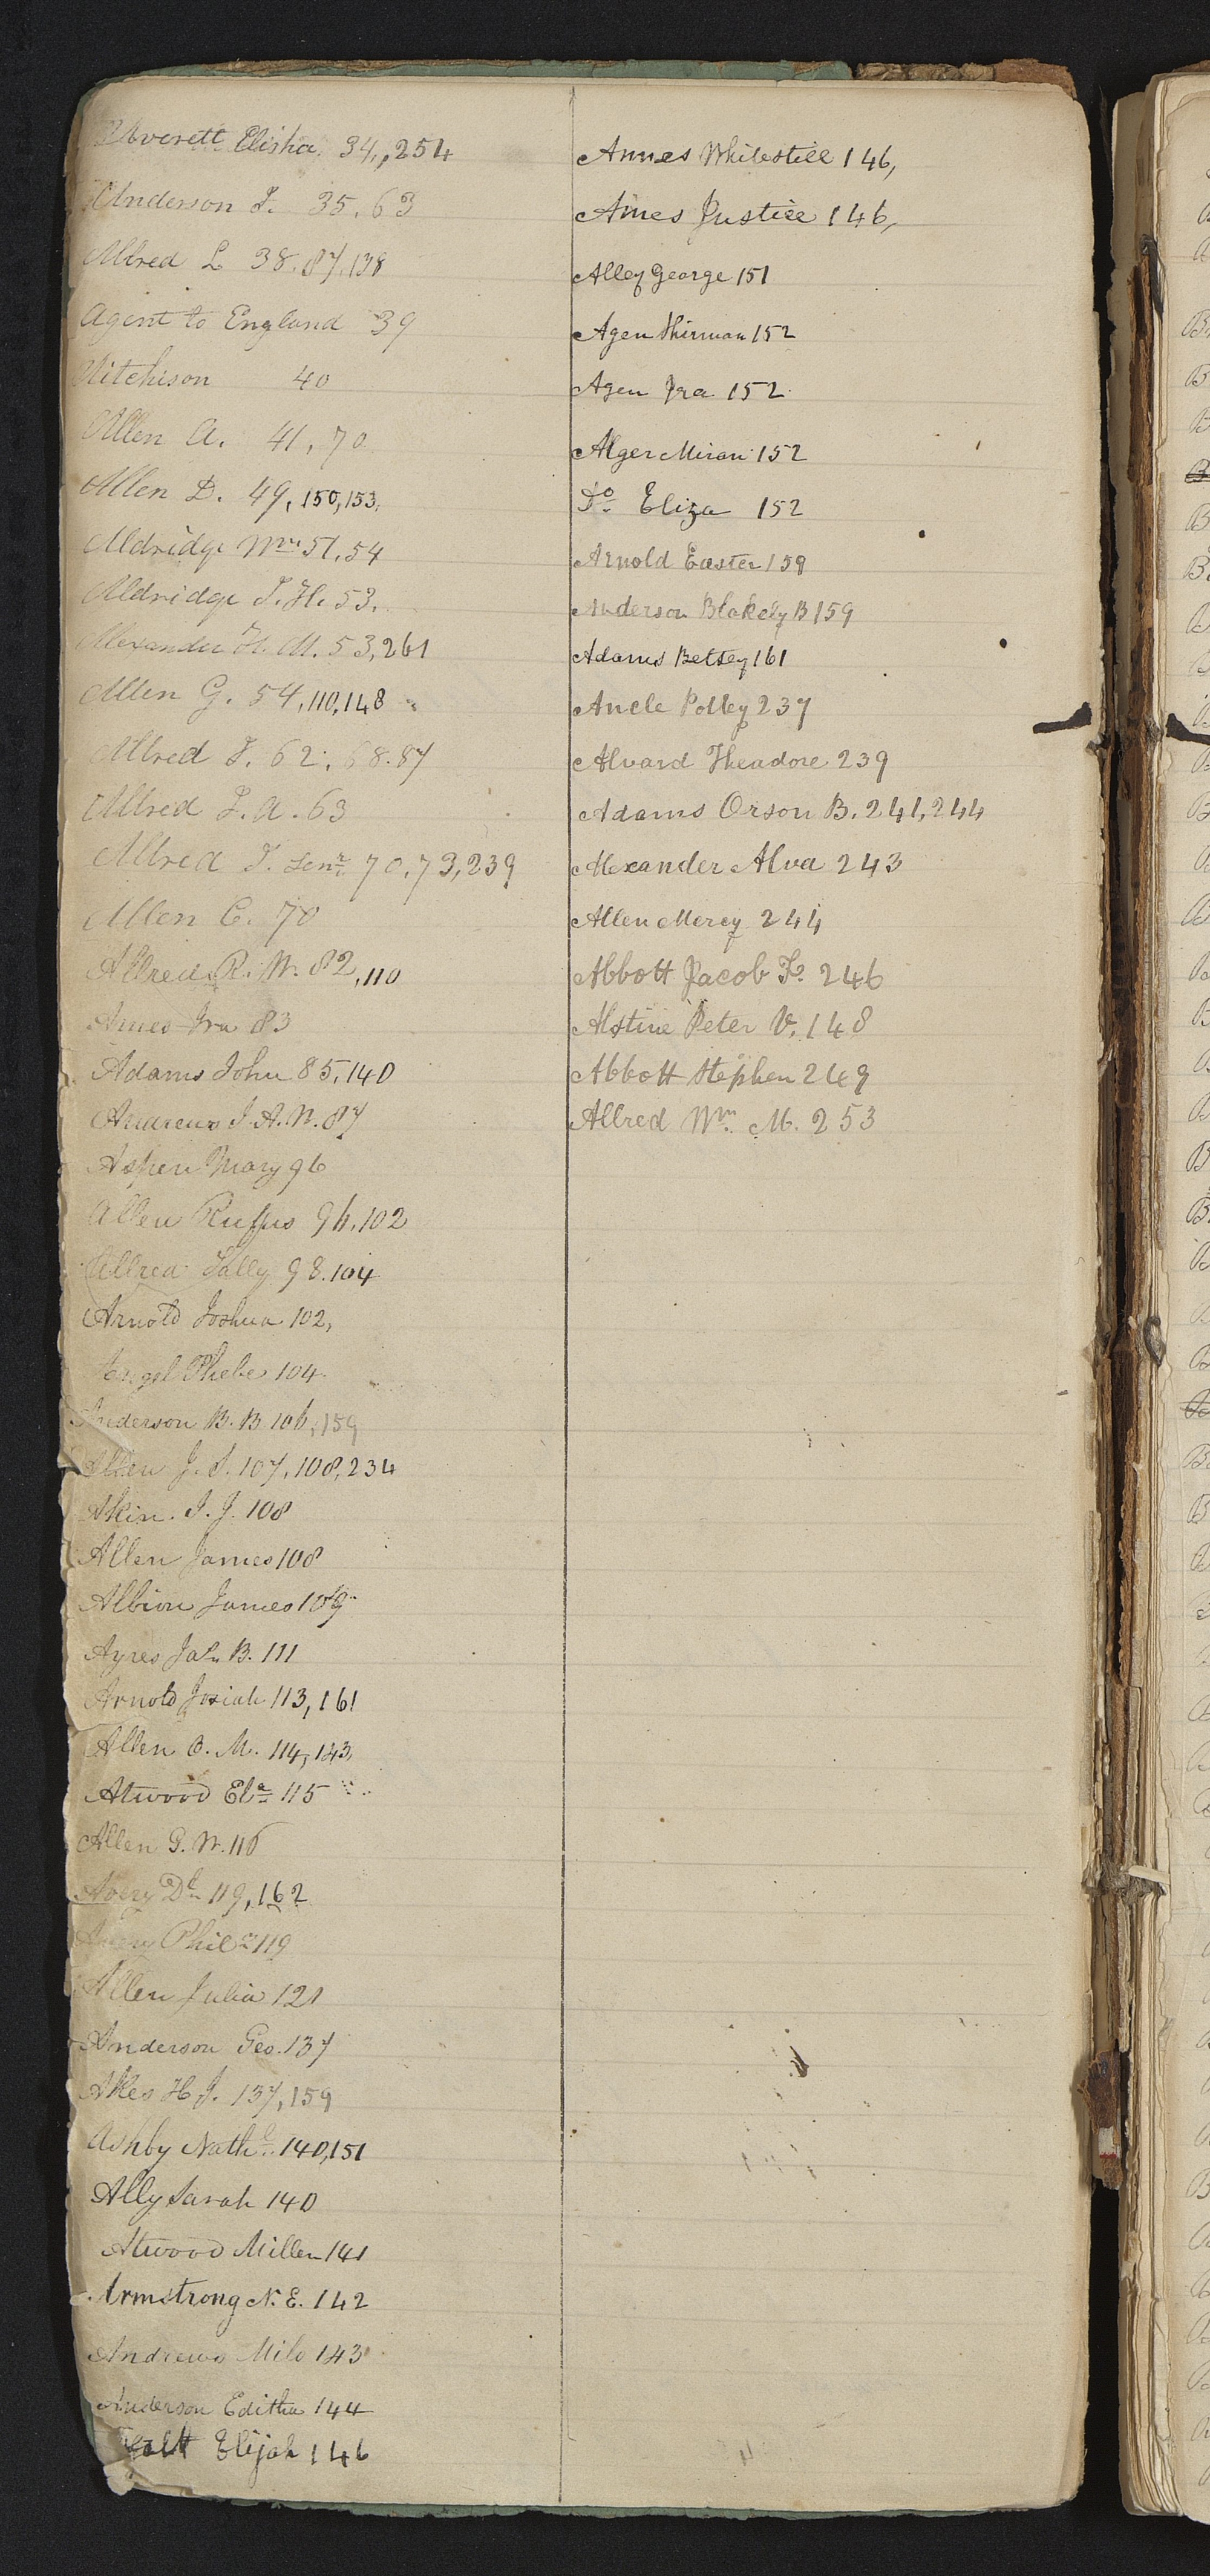 Averett Elisha. 34,,254
Anderson J. 35.63
Allred L 38.87.138
Agent to England 39
Aitchison 40
Allen A. 41,70
Allen D. 49,150,153,
Aldridge Wm. 51.54
Aldridge J. H. 53.
Alexander H. M. 53,261
Allen G. 54,110,148
Allred J. 62.68.87
Allred J. A. 63
Allred J. Senr. 70.73,239
Allen C. 70
Allred R. W. 82,110
Ames Ira 83
Adams John 85,140
Andrews J. A. W. 87
Aspen Mary 96
Allen Rufus 96.102
Allred Sally 98.104
Arnold Joshua 102,
Angel Phebe 104
Anderson B. B 106,159
Allen J. S. 107.108,234
Akin. J. J. 108
Allen James 108
Albion James 109
Ayres B. 111
Arnold Josiah 113,161
Allen O. M. 114,143,
Atwood Ela 115
Allen G. W. 116
Avery Dl 119,162
Avery Phila 119
Allen Julia 121
Anderson Geo. 137
Akes H J. 137,159
Ashby Nathl. 140,151
Ally Sarah 140
Atwood Millen 141
Armstrong N. E. 142
Andrews Milo 143
Anderson Editha 144
Elijah 146
Ames Whitestill 146,
Ames Justice 146,
Alley George 151
Agen Shirman 152
Agen Ira 152
Alger Miran 152
Do. Eliza 152
Arnold Easter 159
Anderson Blakely B 159
Adams Betsey 161
Ancle Polley 237
Alvard Theadore 239
Adams Orson B. 241,244
Alexander Alva 243
Allen Mercy 244
Abbott Jacob F. 246
Alstine Peter V. 148
Abbott Stephen 249
Allred Wm. M. 253